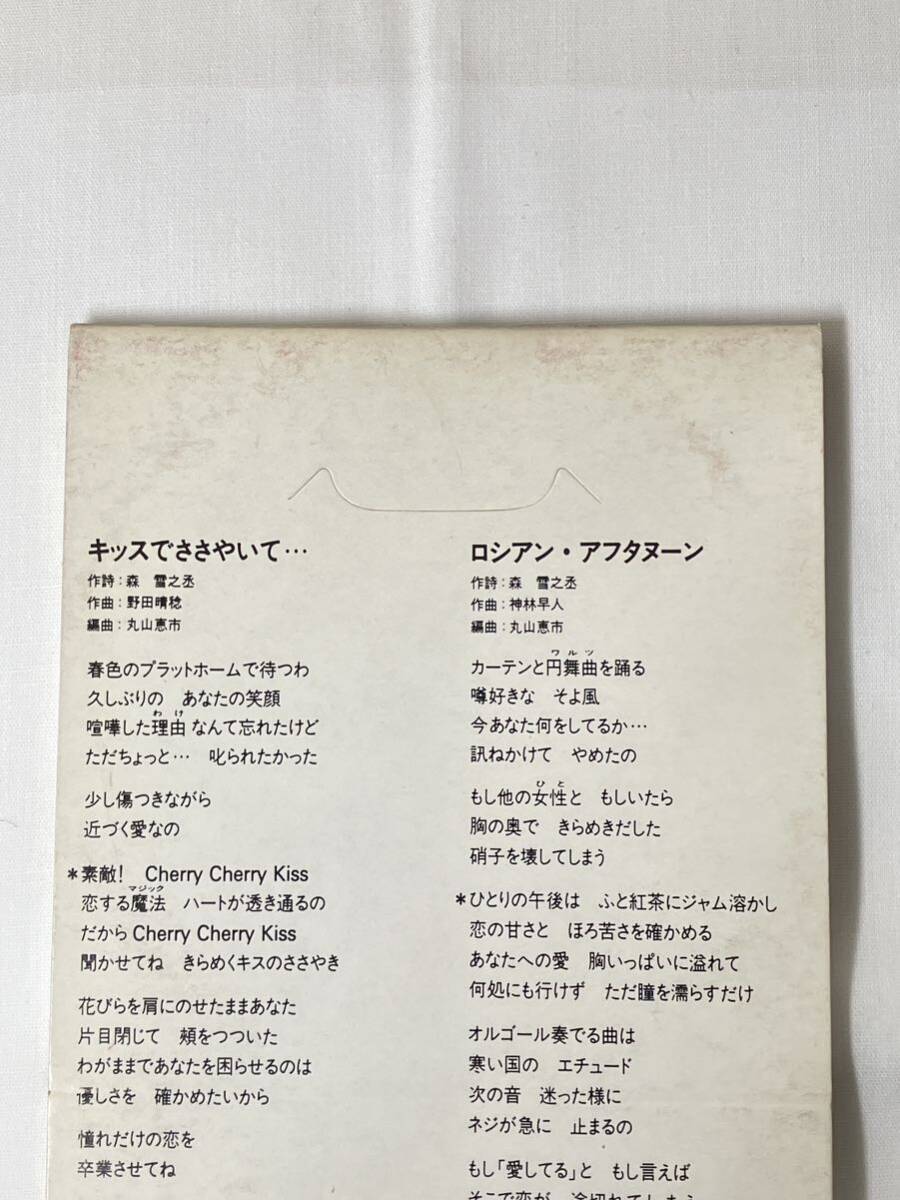 キッスでささやいて…
作詩：森　雪之丞
作曲：野田晴稔
編曲：丸山恵市
春色のプラットホームで待つわ
久しぶりの　あなたの笑顔
わけ
喧嘩した理由なんて忘れたけど
ただちょっと…　叱られたかった
少し傷つきながら
近づく愛なの
＊素敵！　Cherry Cherry Kiss
マジック
恋する魔法　ハートが透き通るの
だから Cherry Cherry Kiss
聞かせてね　きらめくキスのささやき
花びらを肩にのせたままあなた
片目閉じて　頬をつついた
わがままであなたを困らせるのは
優しさを　確かめたいから
憧れだけの恋を
卒業させてね
ロシアン・アフタヌーン
作詩：森　雪之丞
作曲：神林早人
編曲：丸山恵市
ワルツ
カーテンと円舞曲を踊る
噂好きな　そよ風
今あなた何をしてるか…
訊ねかけて　やめたの
ひと
もし他の女性と　もしいたら
胸の奥で　きらめきだした
硝子を壊してしまう
＊ひとりの午後は　ふと紅茶にジャム溶かし
恋の甘さと　ほろ苦さを確かめる
あなたへの愛　胸いっぱいに溢れて
何処にも行けず　ただ瞳を濡らすだけ
オルゴール奏でる曲は
寒い国の　エチュード
次の音　迷った様に
ネジが急に　止まるの
もし「愛してる」と　もし言えば
そこで恋が　途切れてしまう